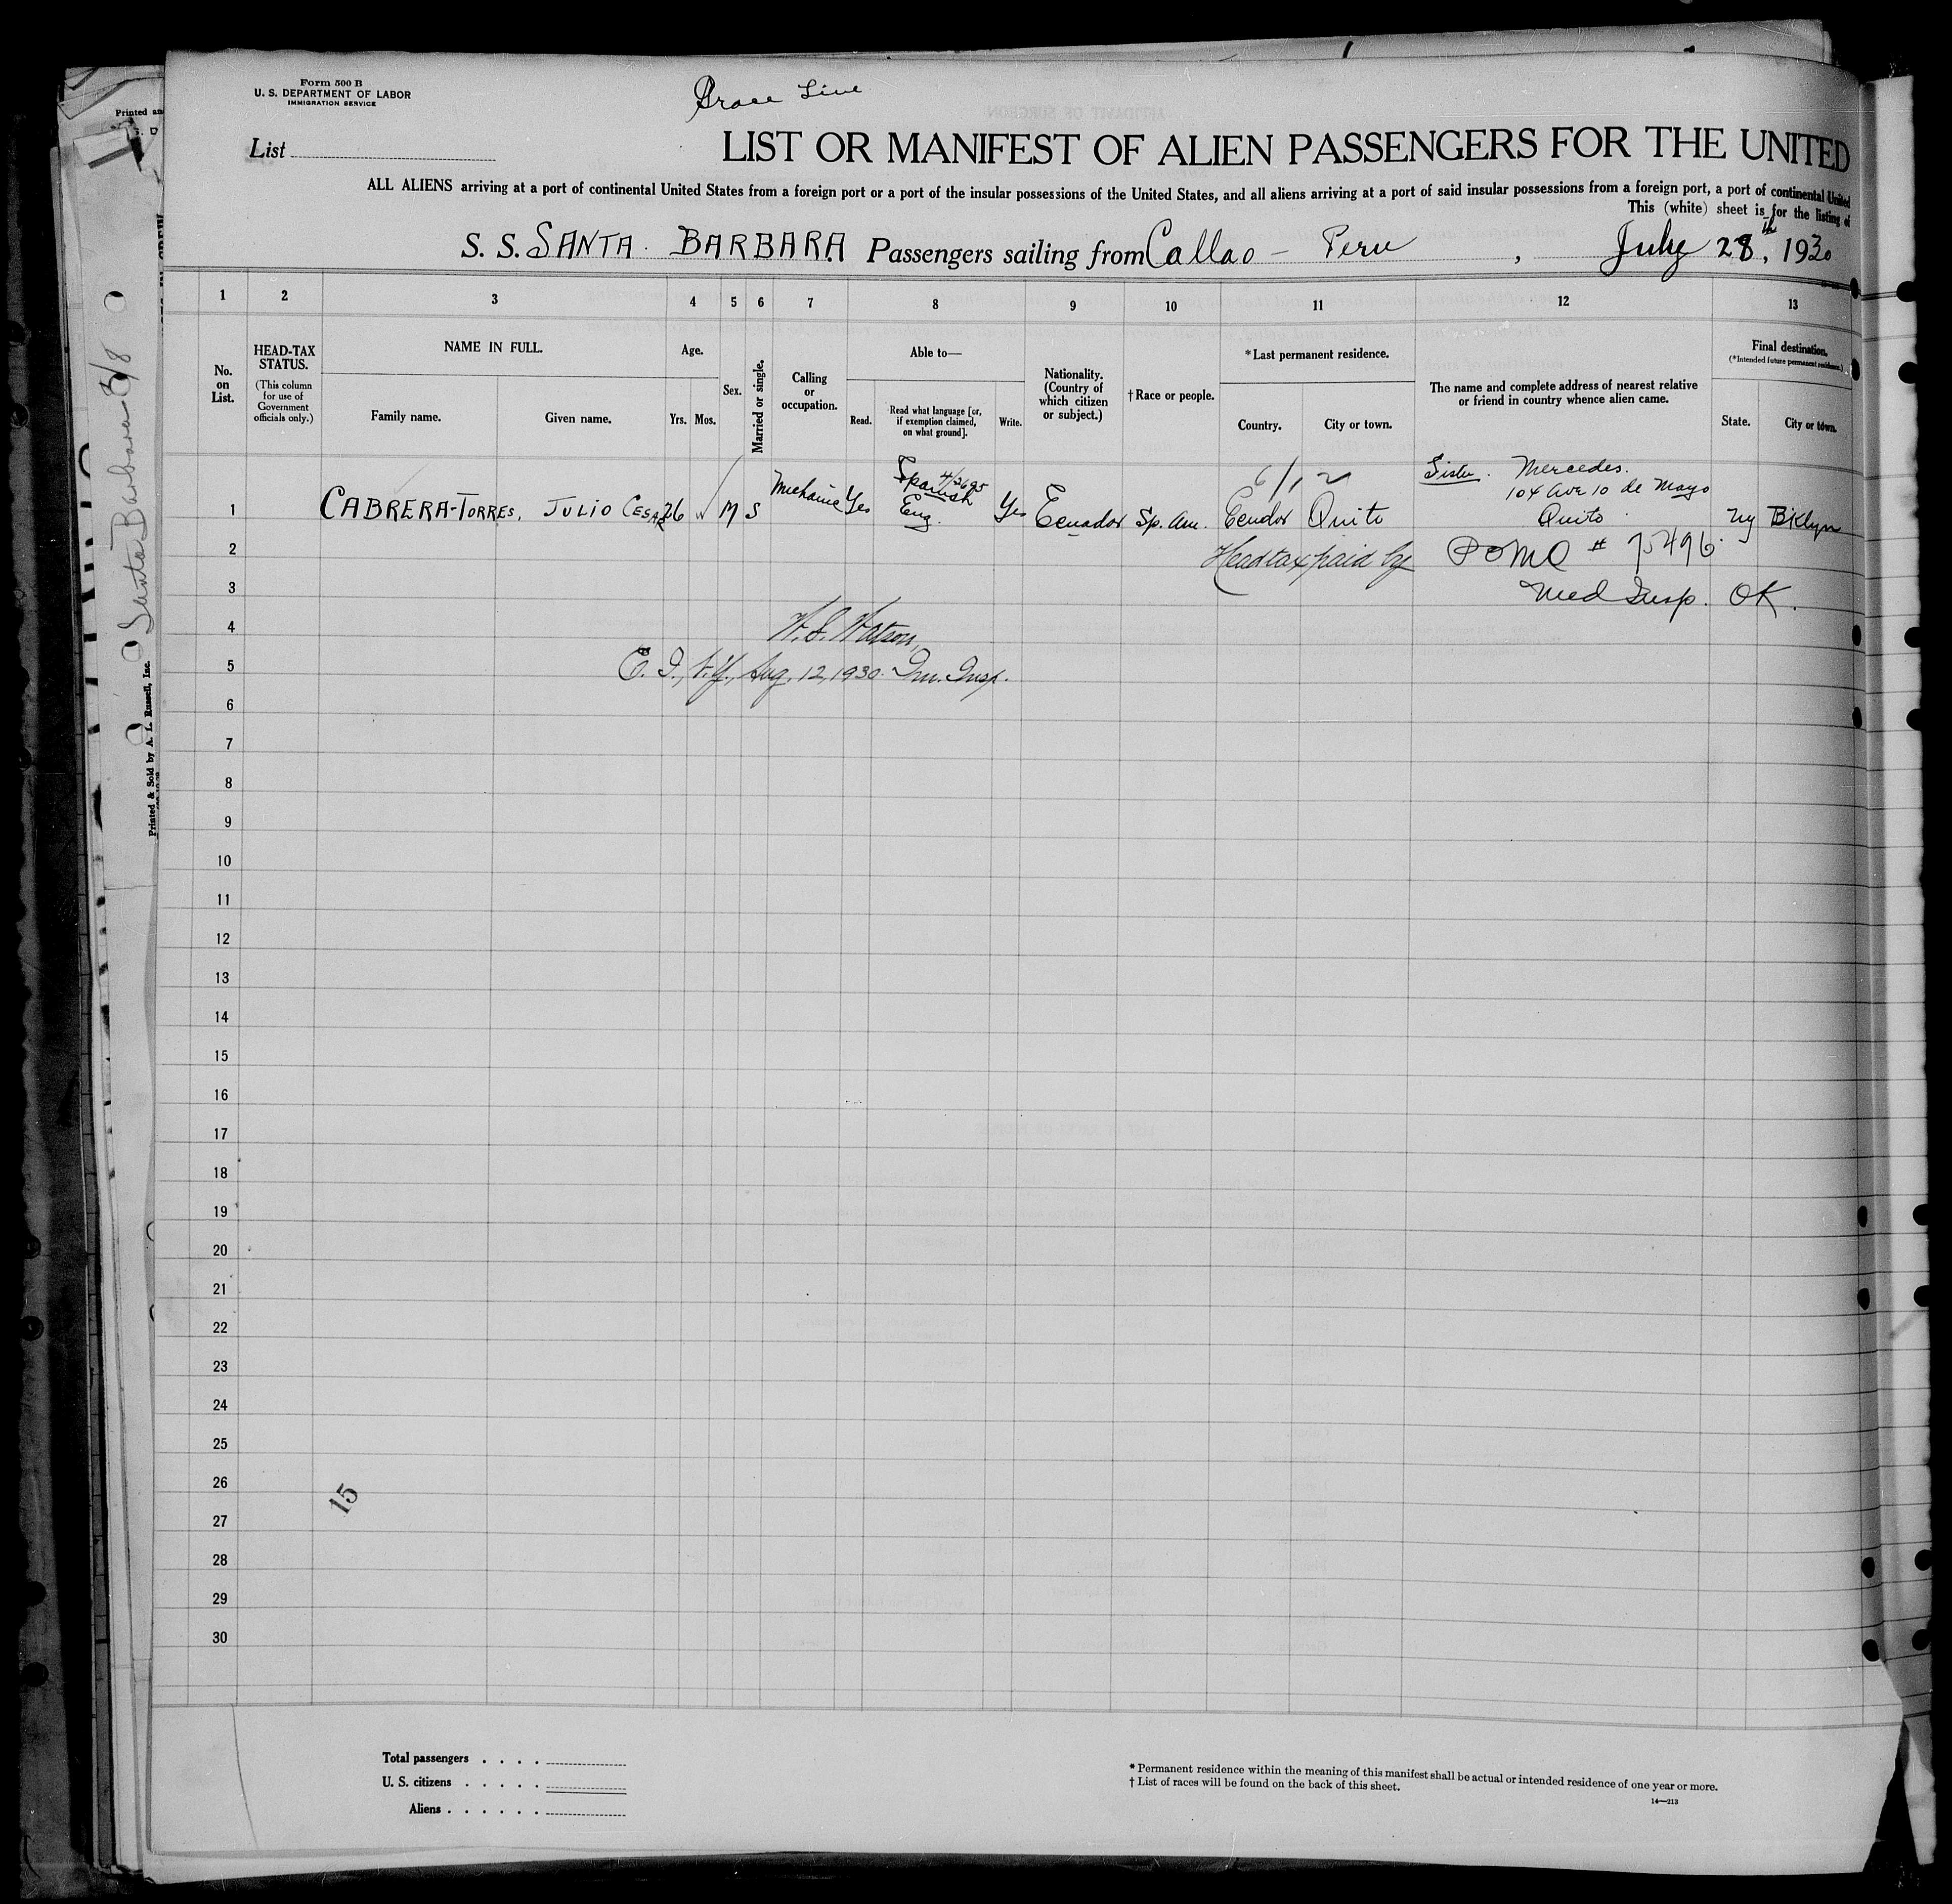 Form 500 B
U. S. DEPARTMENT OF LABOR
IMMIGRATION SERVICE
Grace Line
List
LIST OR MANIFEST OF ALIEN PASSENGERS FOR THE UNITED
ALL ALIENS arriving at a port of continental United States from a foreign port or a port of the insular possessions of the United States, and all aliens arriving at a port of said insular possessions from a foreign port, a port of continental United
This (white) sheet is for the listing of
S. S. SANTA BARBARA Passengers sailing from Callao - Peru, July 28th, 1930
1 2 3 4 5 6 7 8 9 10 11 12 13
No. on List.
HEAD-TAX STATUS.
(This column for use of Government officials only.)
NAME IN FULL.
Family name. Given name.
Age.
Yrs. Mos.
Sex.
Married or single.
Calling or occupation.
Able to—
Read. Read what language [or, if exemption claimed, on what ground]. Write.
Nationality. (Country of which citizen or subject.)
† Race or people.
* Last permanent residence.
Country. City or town.
The name and complete address of nearest relative or friend in country whence alien came.
Final destination.
(* Intended future permanent residence.)
State. City or town.
6/12
Sister. Mercedes.
104 Ave 10 de Mayo
Quito
1 CABRERA-TORRES, JULIO CESAR 26 M S Mechanic Yes Spanish Eng. Yes Ecuador Sp. Am. Ecudor Quito NY Bklyn
2 Head tax paid by # 75496
3 Med Insp. OK.
4 W. S. Watson,
5 E. I., N.Y., Aug. 12, 1930. Im. Insp.
6
7
8
9
10
11
12
13
14
15
16
17
18
19
20
21
22
23
24
25
26
15
27
28
29
30
Total passengers
U. S. citizens
Aliens
* Permanent residence within the meaning of this manifest shall be actual or intended residence of one year or more.
† List of races will be found on the back of this sheet.
14—213
Printed & Sold by A. L. Russell, Inc.
Santa Barbara
Printed an